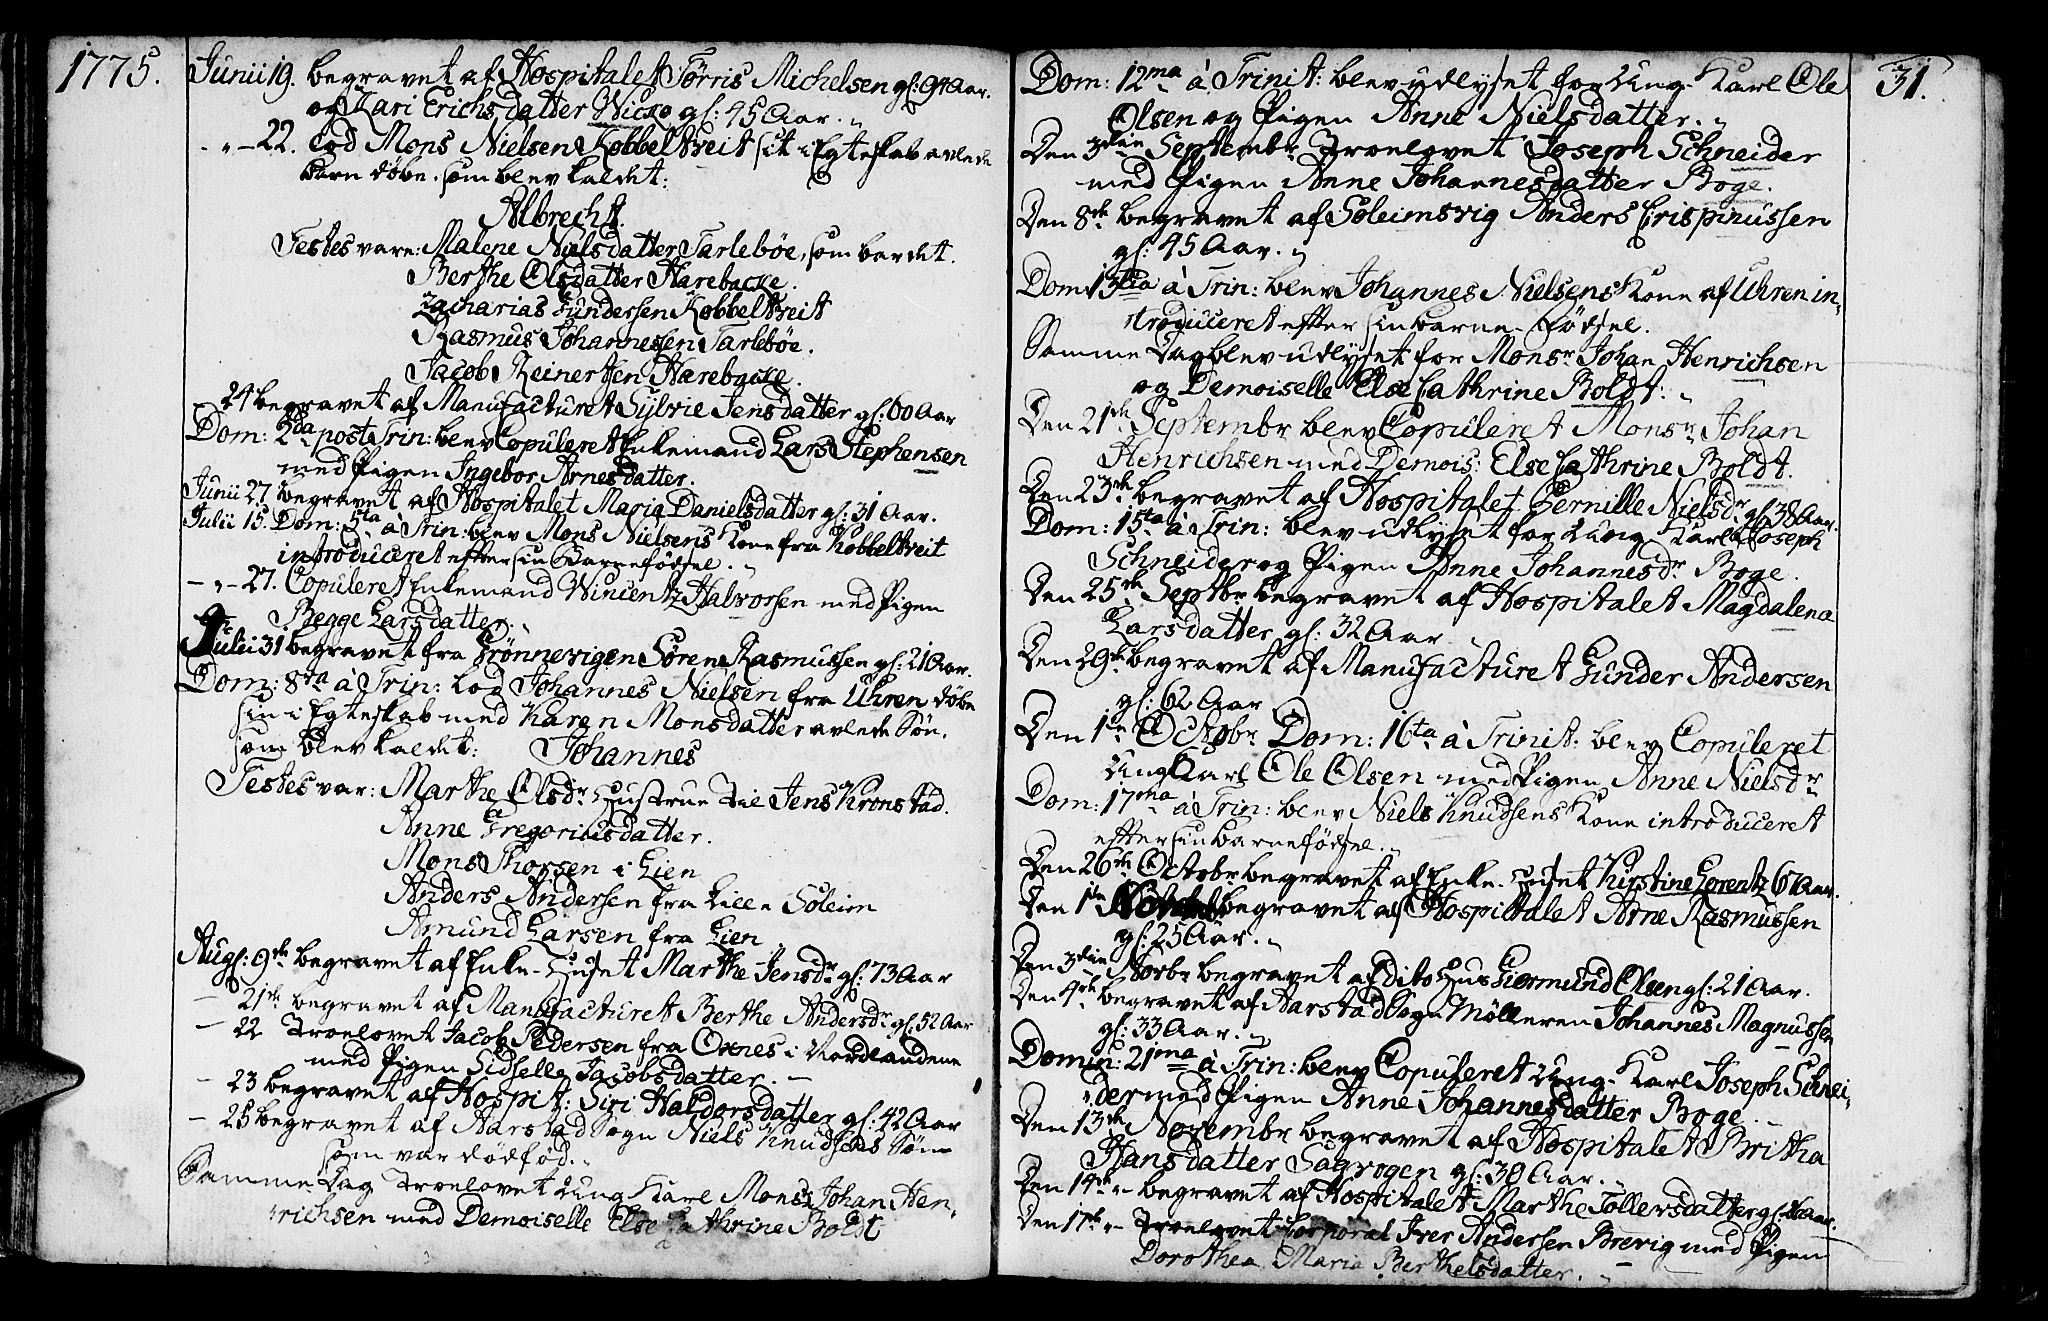 1775.
Junii 19. begravet af Hospitalet Tørris Michelsen gl: 94 Aar.
og Kari Erichsdatter gl: 45 Aar.
22. Lod Mons Nielsen Kobbeltveit sit i Egteskab avlede
Barn døbe, som blev kaldet:
Albrecht.
Testes vare: Malene Nielsdatter Tarlebøe, som bar det.
Berthe Olsdatter Harebacke.
Zacharias Gundersen Kobbeltveit
Rasmus Johannessen Tarlebøe.
Jacob Reinertsen Harebacke.
24 begravet af Manufacturet Sylvie Jensdatter gl: 60 Aar
Dom: 2da post Trin: blev Copuleret Enkemand Lars Stephensen
med Pigen Ingebor Arnesdatter.
Junii 27. begravet af Hospitalet Maria Danielsdatter gl: 31 Aar.
Julii 15. Dom: 5ta à Trin: blev Mons Nielsens Kone fra Kobbeltveit
introduceret efter sin Barnefødsel.
- „ - 27. Copuleret Enkemand Wincentz Halvorsen med Pigen
Begge Larsdatter.
Julii 31 begravet fra Grønnevigen Søren Rasmussen gl: 21 Aar.
Dom: 8va à Trin: Lod Johannes Nielsen fra Uhren døbe
sin i Egteskab med Karen Monsdatter avlede Søn,
som blev kaldet: Johannes
Testes var: Marthe Olsdr Hustrue til Jens Kronstad.
Anne Gregoriusdatter.
Mons Thorsen i Lien
Anders Andersen fra Lille Soleim
Amund Larsen fra Lien
Augs: 9de begravet af Enke-Huset Marthe Jensdr gl: 73 Aar
- 21de begravet af Manufacturet Berthe Andersdr gl: 52 Aar
- 22 Troelovet Jacob Pedersen fra Oxnes i Nordlandene
med Pigen Sidselle Jacobsdatter. -
- 23 begravet af Hospit: Siri Haldorsdatter gl: 42 Aar
- 25 begravet af Aarstad Sogn Niels Knudsens Søn
som var dødfød.
Samme Dag Troelovet Ung Karl Monsr Johan Hen-
richsen med Demoiselle Else Cathrine Boldt
31.
Dom: 12ma à Trinit: blev udlyset for Ung-Karl Ole
Olsen og Pigen Anne Nielsdatter.
Den 3die Septembr Troelovet Joseph Schneider
med Pigen Anne Johannesdatter Boge.
Den 8de begravet af Soleimsvig Anders Crispinussen
gl: 45 Aar.
Dom: 13tia à Trin: blev Johannes Nielsens Kone af Uhren in-
troduceret efter sin Barne-Fødsel.
Samme Dag blev udlyset for Monsr Johan Henrichsen
og Demoiselle Else Cathrine Boldt.
Den 21de Septembr blev Copuleret Monsr Johan
Henrichsen med Demois: Else Cathrine Boldt.
Den 23de begravet af Hospitalet Pernille Nielsdr gl: 38 Aar.
Dom: 15ta à Trin: blev udlyset for Ung Karl Joseph
Schneider og Pigen Anne Johannesdr Boge.
Den 25de Septbr begravet af Hospitalet Magdalena
Larsdatter gl: 32 Aar
Den 29de begravet af Manufacturet Gunder Andersen
gl: 62 Aar
Den 1te Octobr Dom: 16ta à Trinit: blev Copuleret
Ung Karl Ole Olsen med Pigen Anne Nielsdr
Dom: 17ma à Trin: blev Niels Knudsens Kone introduceret
efter sin Barnefødsel.
Den 26de Octobr begravet af Enke-Huset Kirstine Lorentz 67 Aar.
Den 1te begravet af Hospitalet Arne Rasmussen
gl: 25 Aar.
Den 3die Novbr begravet af dito Hus Giermund Olsen gl: 21 Aar.
Den 4de begravet af Aarstad Sogn Mølleren Johannes Magnussen
gl: 33 Aar.
Domin: 21ma à Trin: blev Copuleret Ung-Karl Joseph Schnei-
der med Pigen Anne Johannesdatter Boge.
Den 13de Novembr begravet af Hospitalet Britha
Hansdatter Sagvogen gl: 38 Aar.
Den 14de begravet af Hospitalet Marthe Tollersdatter gl: Aar.
Den 17de Troelovet Corporal Iver Andersen Brevig med Pigen
Dorothea Maria Berthelsdatter.